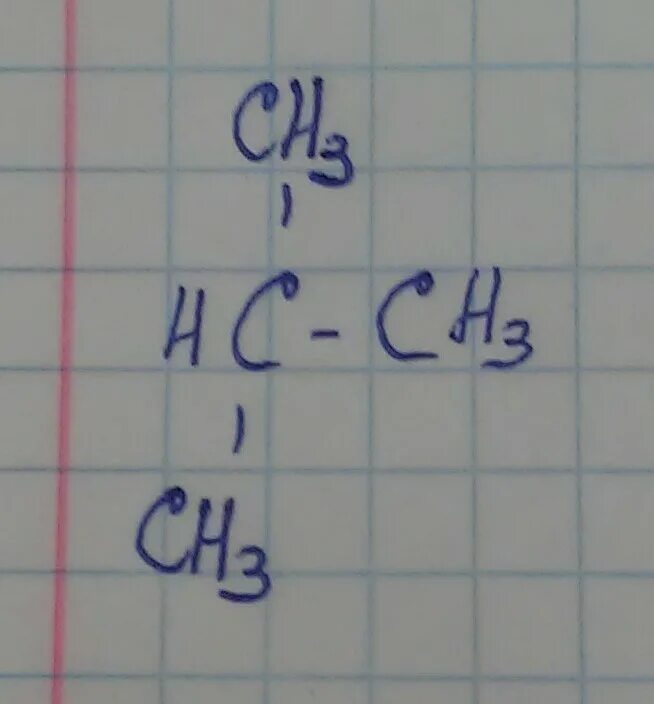 CH3
HC-CH3
CH3